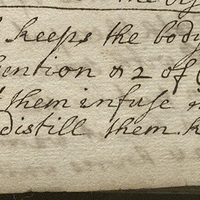 keeps the body
mention & 2 of
them infuse
distill them